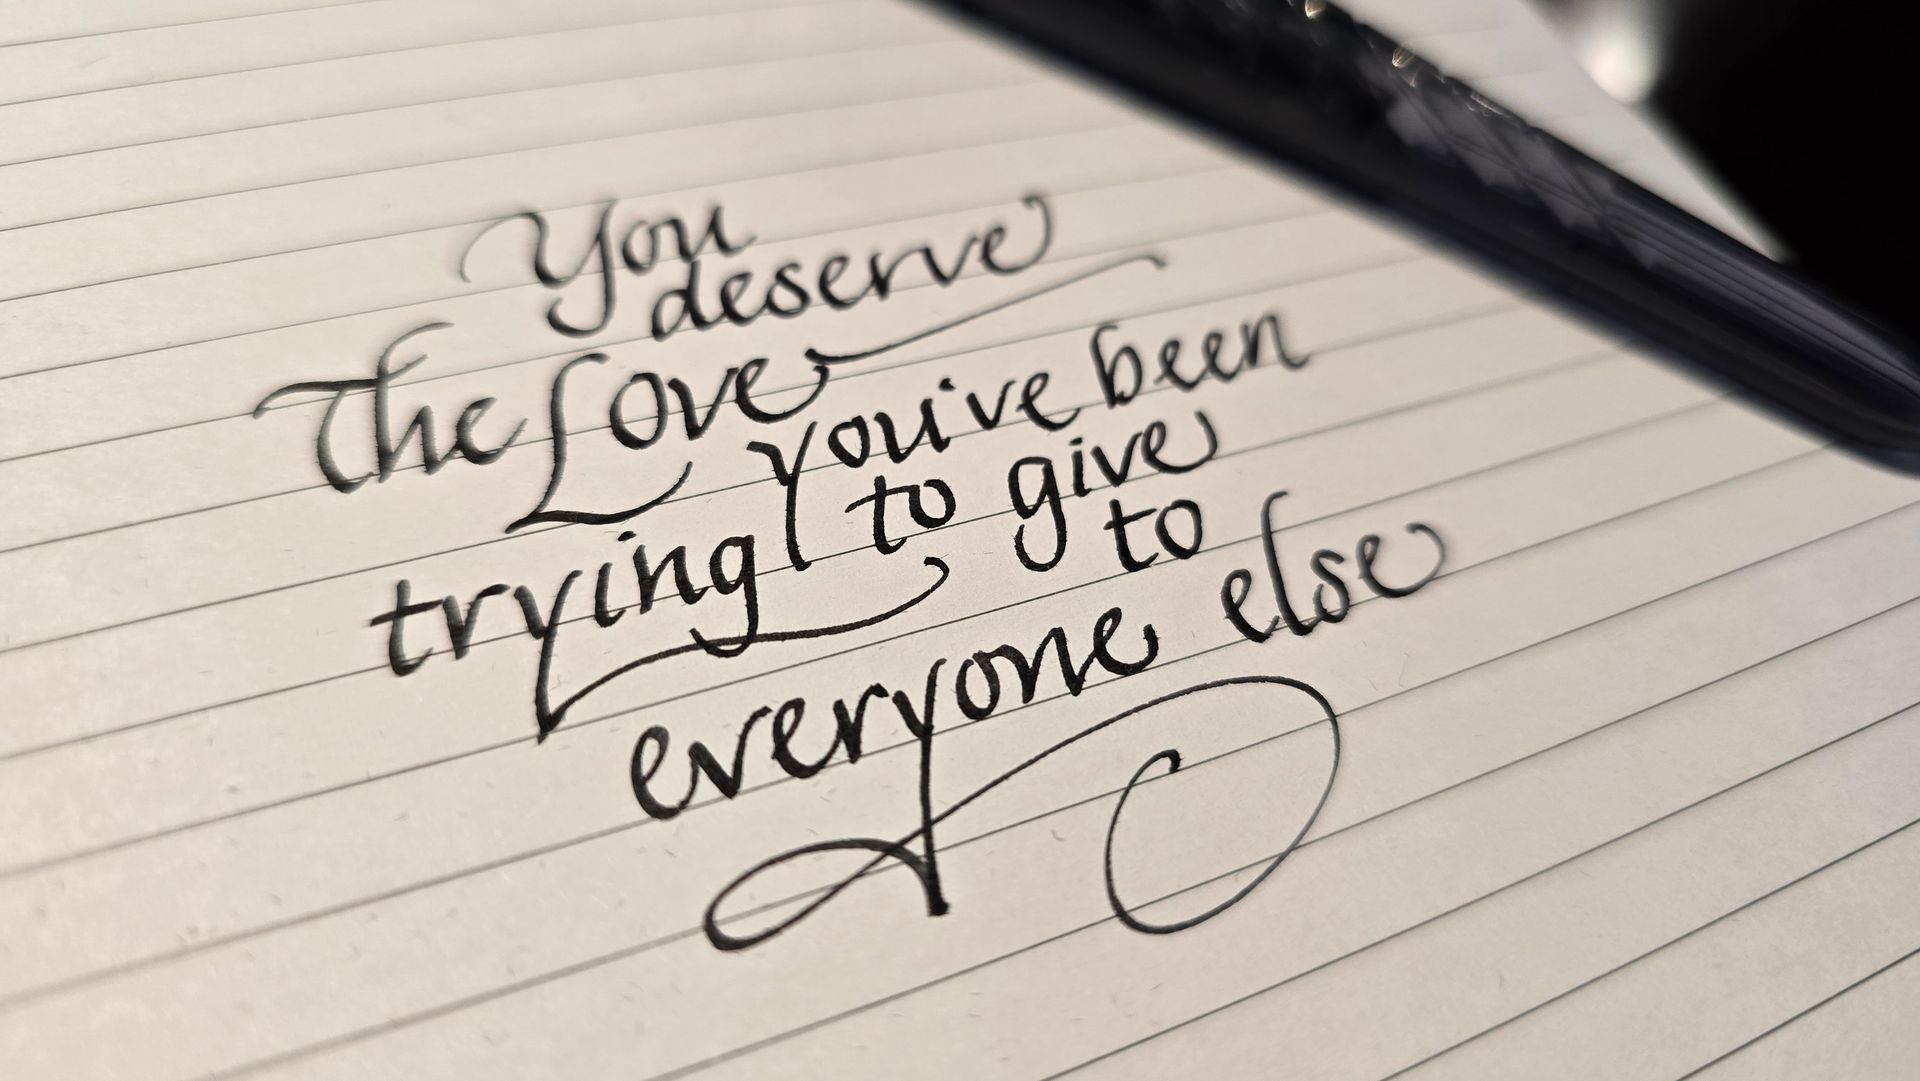 You
deserve
The Love
you've been
trying to give
to
everyone else